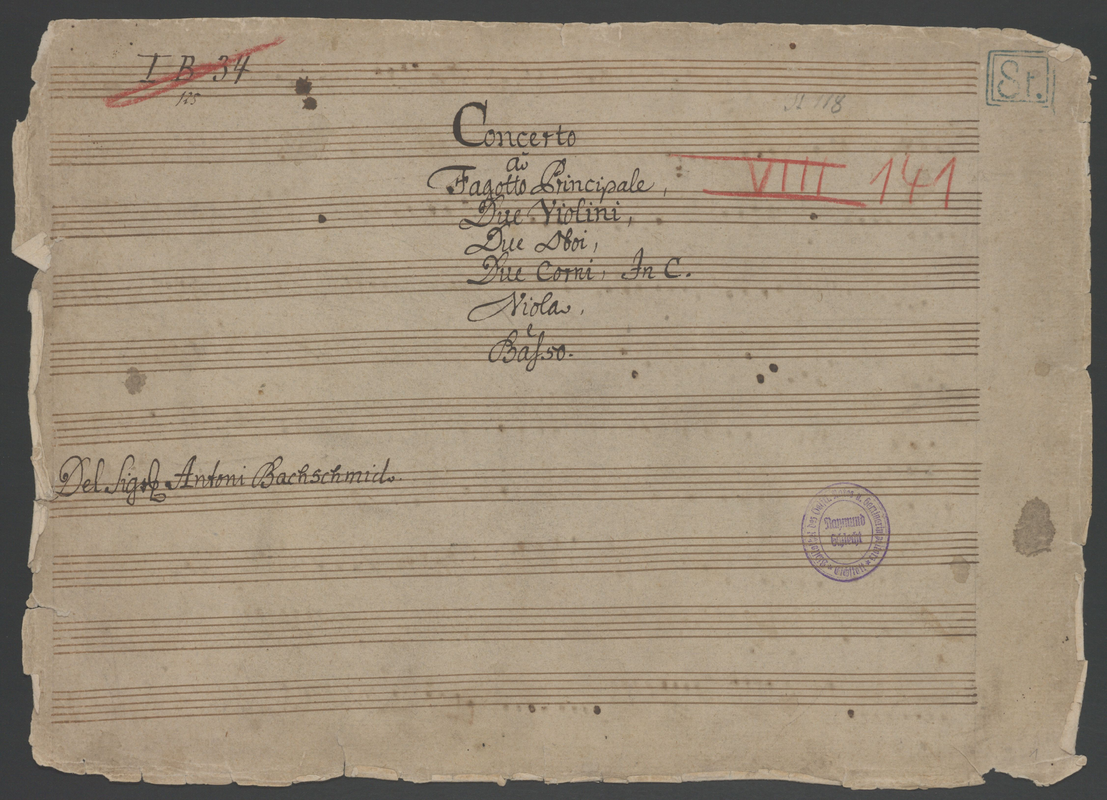 I B 34
125
Sr.
Concerto
a
Fagotto Principale,
VIIII 141
Due Violini,
Due Oboi,
Due Corni, In C.
Viola,
e
Basso.
Del Sigre Antoni Bachschmid.
Raymund
Schlecht